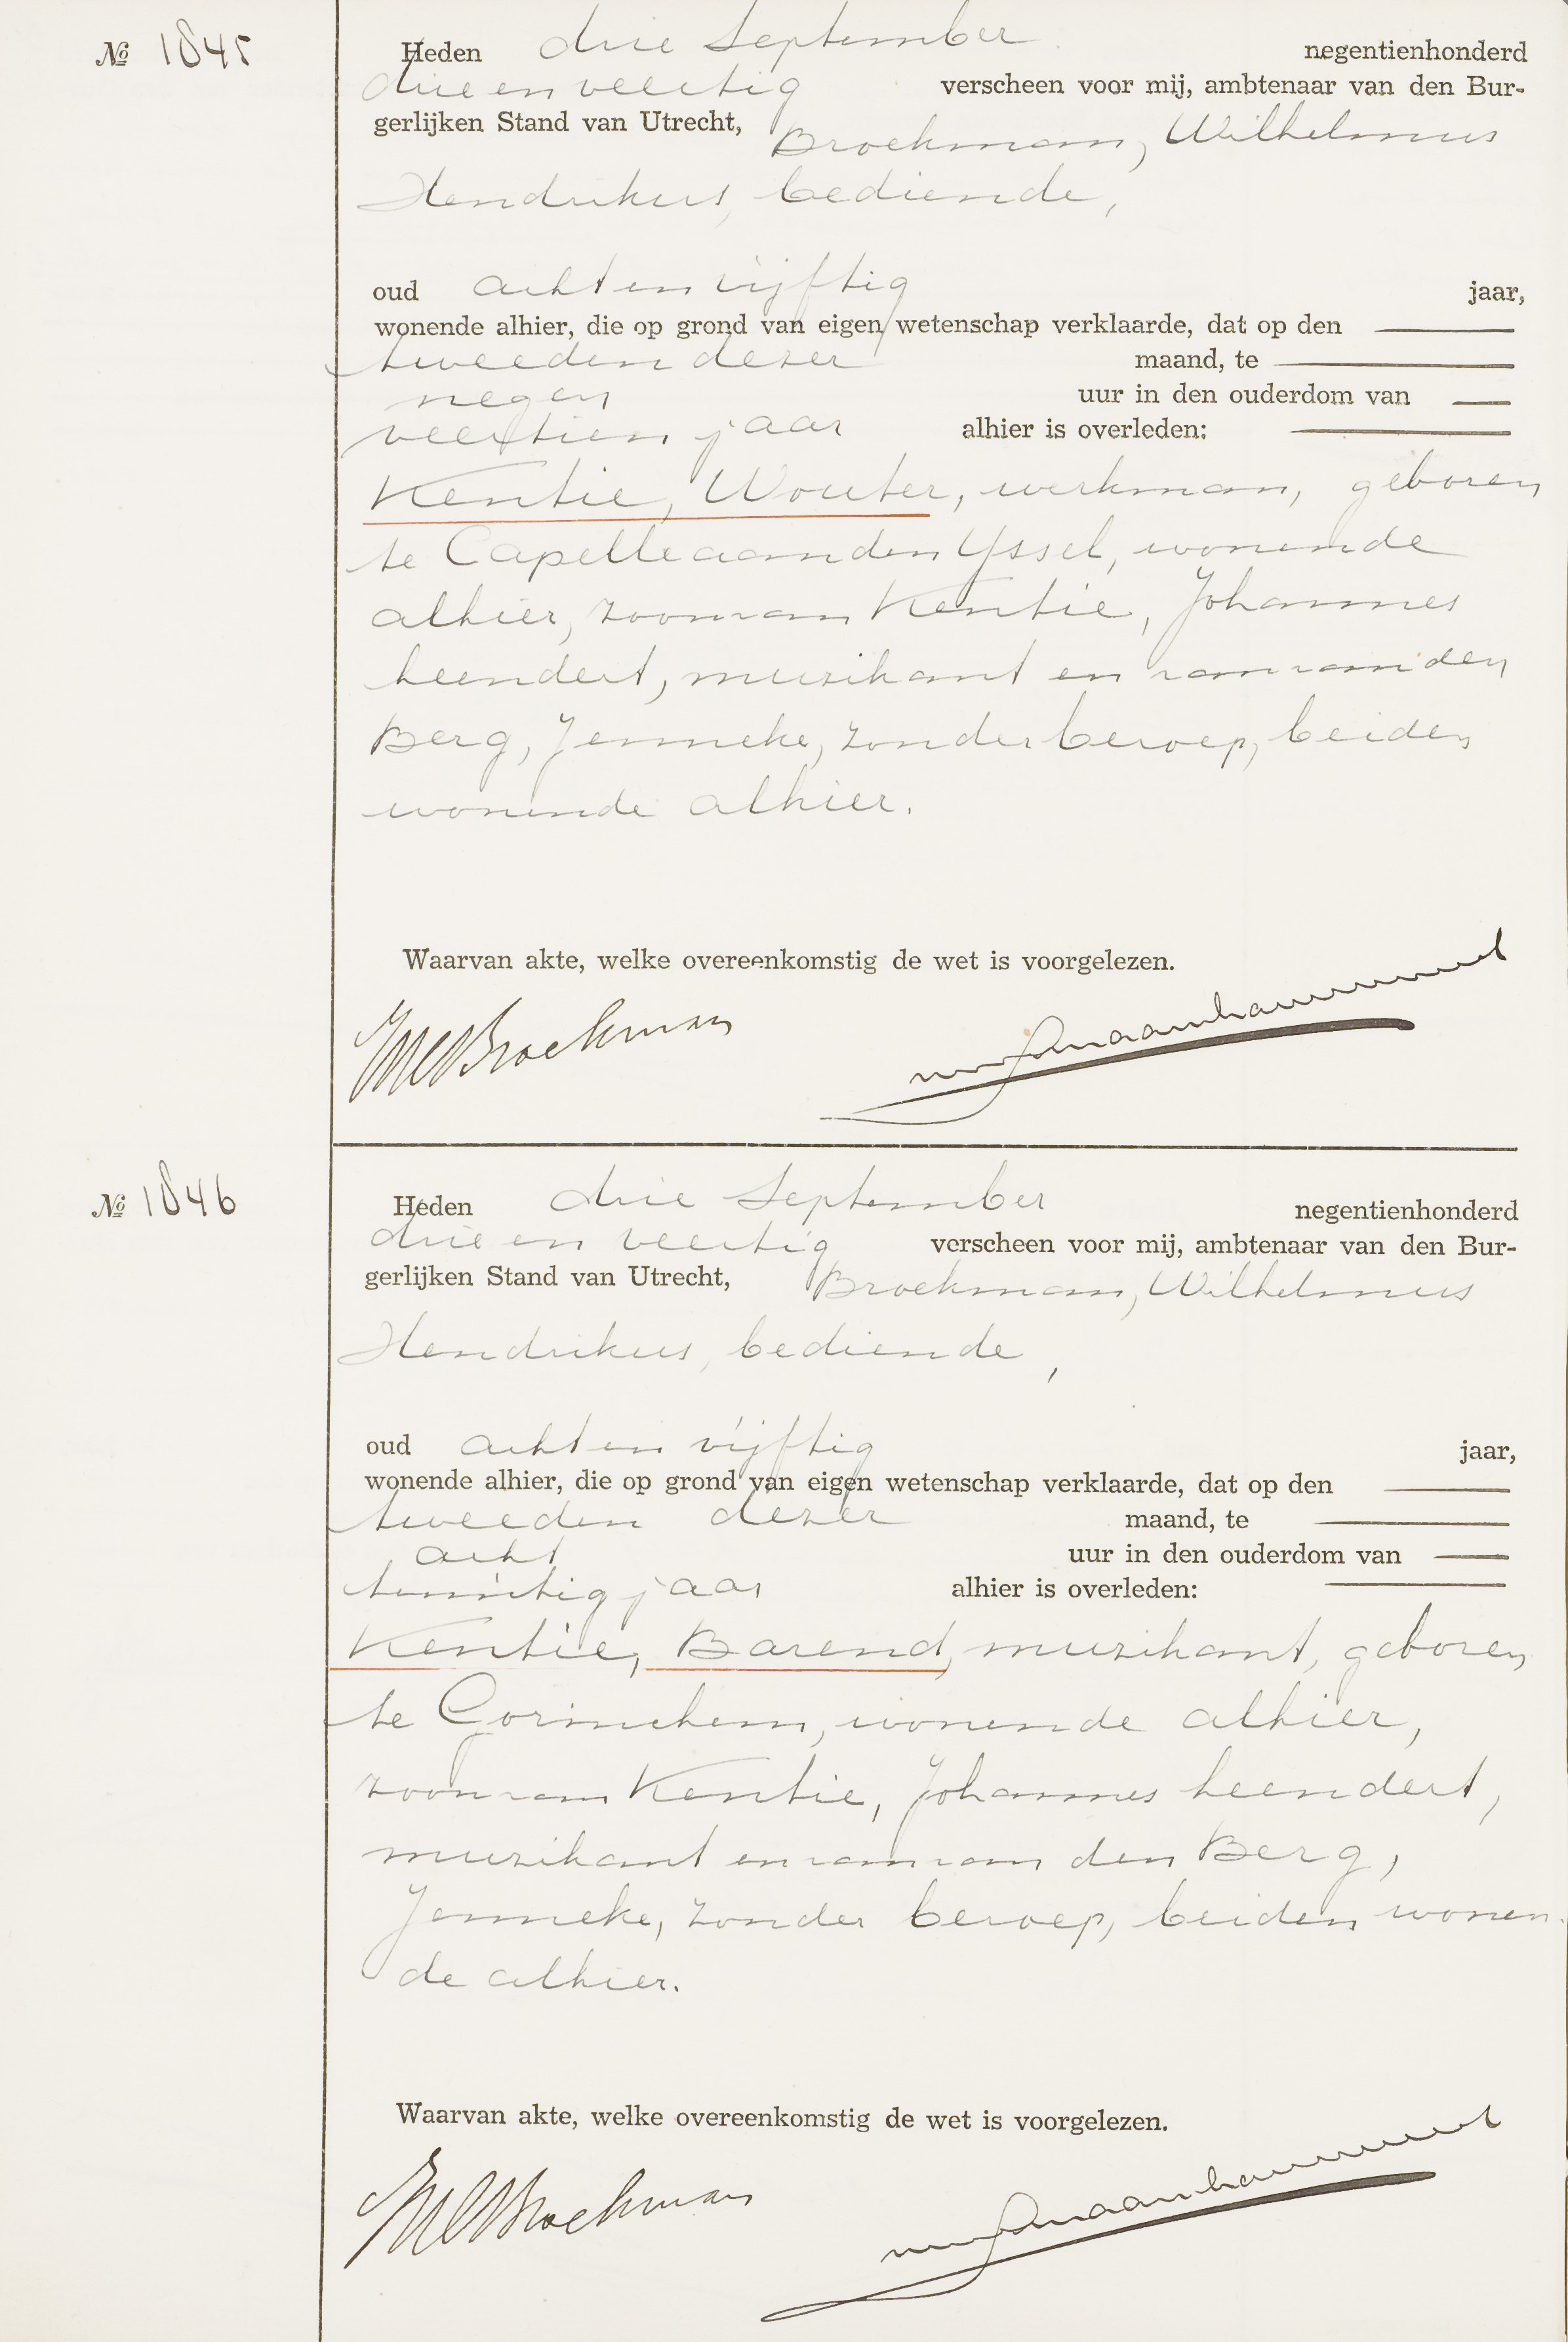 № 1845
Heden drie September negentienhonderd
drie en veertig verscheen voor mij, ambtenaar van den Bur-
gerlijken Stand van Utrecht, Broekman, Wilhelmus
Hendrikus, bediende,
oud acht en vijftig jaar,
wonende alhier, die op grond van eigen wetenschap verklaarde, dat op den
tweeden dezer maand, te
negen uur in den ouderdom van
veertien jaar alhier is overleden:
Kentie, Wouter, werkman, geboren
te Capelle aan den Yssel, wonende
alhier, zoon van Kentie, Johannes
Leendert, muzikant en van van den
Berg, Jenneke, zonder beroep, beiden
wonende alhier.
Waarvan akte, welke overeenkomstig de wet is voorgelezen.
WBroekman
№ 1846
Heden drie September negentienhonderd
drie en veertig verscheen voor mij, ambtenaar van den Bur-
gerlijken Stand van Utrecht, Broekman, Wilhelmus
Hendrikus, bediende,
oud acht en vijftig jaar,
wonende alhier, die op grond van eigen wetenschap verklaarde, dat op den
tweeden dezer maand, te
acht uur in den ouderdom van
twintig jaar alhier is overleden:
Kentie, Barend, muzikant, geboren
te Gorinchem, wonende alhier,
zoon van Kentie, Johannes Leendert,
muzikant en van van den Berg,
Jenneke, zonder beroep, beiden wonen-
de alhier.
Waarvan akte, welke overeenkomstig de wet is voorgelezen.
WBroekman